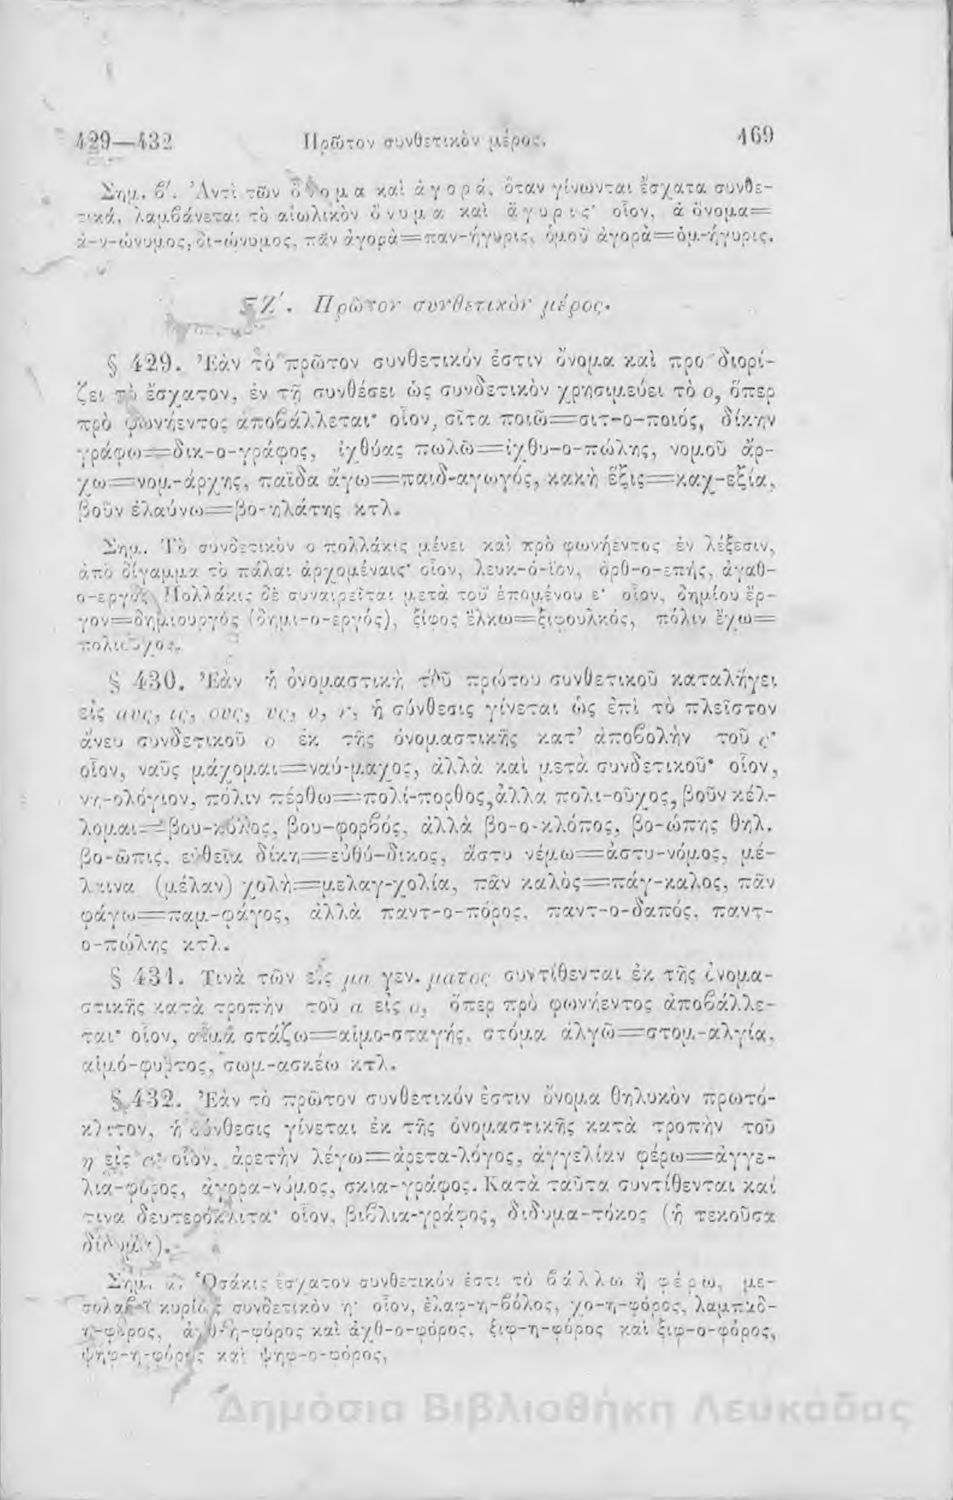 429—432 Πρῶτον συνθετικὸν μέρος. 469
Σημ. β΄. Ἀντὶ τῶν ὄνομα καὶ ἀγορά, ὅταν γίνωνται ἔσχατα συνθε-
τικά, λαμβάνεται τὸ αἰωλικὸν ὄνυμα καὶ ἄγυρις· οἷον, ἀ ὄνομα=
ἀ-ν-ώνυμος, δι-ώνυμος, πᾶν ἀγορὰ=παν-ήγυρις, ὁμοῦ ἀγορὰ=ὁμ-ήγυρις.
ϚΖ΄. Πρῶτον συνθετικὸν μέρος.
§ 429. Ἐὰν τὸ πρῶτον συνθετικόν ἐστιν ὄνομα καὶ προσδιορί-
ζει τὸ ἔσχατον, ἐν τῇ συνθέσει ὡς συνδετικὸν χρησιμεύει τὸ ο, ὅπερ
πρὸ φωνήεντος ἀποβάλλεται· οἷον, σῖτα ποιῶ=σιτ-ο-ποιός, δίκην
γράφω=δικ-ο-γράφος, ἰχθύας πωλῶ=ἰχθυ-ο-πώλης, νομοῦ ἄρ-
χω=νομ-άρχης, παῖδα ἄγω=παιδ-αγωγός, κακὴ ἕξις=καχ-εξία,
βοῦν ἐλαύνω=βο-ηλάτης κτλ.
Σημ. Τὸ συνδετικὸν ο πολλάκις μένει καὶ πρὸ φωνήεντος ἐν λέξεσιν,
ἀπὸ δίγαμμα τὸ πάλαι ἀρχομέναις· οἷον, λευκ-ό-ϊον, ὀρθ-ο-επής, ἀγαθ-
ο-εργός. Πολλάκις δὲ συναιρεῖται μετὰ τοῦ ἑπομένου ε· οἷον, δημίου ἔρ-
γον=δημιουργός (δημι-ο-εργός), ξίφος ἕλκω=ξιφουλκός, πόλιν ἔχω=
πολιοῦχος.
§ 430. Ἐὰν ἡ ὀνομαστικὴ τοῦ πρώτου συνθετικοῦ καταλήγει
εἰς αυς, ις, ους, υς, υ, ν, ἡ σύνθεσις γίνεται ὡς ἐπὶ τὸ πλεῖστον
ἄνευ συνδετικοῦ ο ἐκ τῆς ὀνομαστικῆς κατ' ἀποβολὴν τοῦ ς·
οἷον, ναῦς μάχομαι=ναύ-μαχος, ἀλλὰ καὶ μετὰ συνδετικοῦ· οἷον,
νη-ολόγιον, πόλιν πέρθω=πολί-πορθος, ἀλλὰ πολι-οῦχος, βοῦν κέλ-
λομαι=βου-κόλος, βου-φορβός, ἀλλὰ βο-ο-κλόπος, βο-ώπης θηλ.
βο-ῶπις, εὐθεῖα δίκη=εὐθύ-δικος, ἄστυ νέμω=ἀστυ-νόμος, μέ-
λαινα (μέλαν) χολὴ=μελαγ-χολία, πᾶν καλὸς=πάγ-καλος, πᾶν
φάγω=παμ-φάγος, ἀλλὰ παντ-ο-πόρος, παντ-ο-δαπός, παντ-
ο-πώλης κτλ.
§ 431. Τινὰ τῶν εἰς μα γεν. ματος συντίθενται ἐκ τῆς ὀνομα-
στικῆς κατὰ τροπὴν τοῦ α εἰς ο, ὅπερ πρὸ φωνήεντος ἀποβάλλε-
ται· οἷον, αἷμα στάζω=αἱμο-σταγής, στόμα ἀλγῶ=στομ-αλγία,
αἱμό-φυρτος, σωμ-ασκέω κτλ.
§ 432. Ἐὰν τὸ πρῶτον συνθετικόν ἐστιν ὄνομα θηλυκὸν πρωτό-
κλιτον, ἡ σύνθεσις γίνεται ἐκ τῆς ὀνομαστικῆς κατὰ τροπὴν τοῦ
η εἰς α· οἷον, ἀρετὴν λέγω=ἀρετα-λόγος, ἀγγελίαν φέρω=ἀγγε-
λια-φόρος, ἀγορα-νόμος, σκια-γράφος. Κατὰ ταῦτα συντίθενται καί
τινα δευτερόκλιτα· οἷον, βιβλια-γράφος, διδυμα-τόκος (ἡ τεκοῦσα
δίδυμα).
Σημ. α΄. Ὁσάκις ἔσχατον συνθετικόν ἐστι τὸ βάλλω ἢ φέρω, με-
σολαβεῖ κυρίως συνδετικὸν η· οἷον, ἐλαφ-η-βόλος, χο-η-φόρος, λαμπαδ-
η-φόρος, ἀχθ-η-φόρος καὶ ἀχθ-ο-φόρος, ξιφ-η-φόρος καὶ ξιφ-ο-φόρος,
ψηφ-η-φόρος καὶ ψηφ-ο-φόρος,
Δημόσια Βιβλιοθήκη Λευκάδας